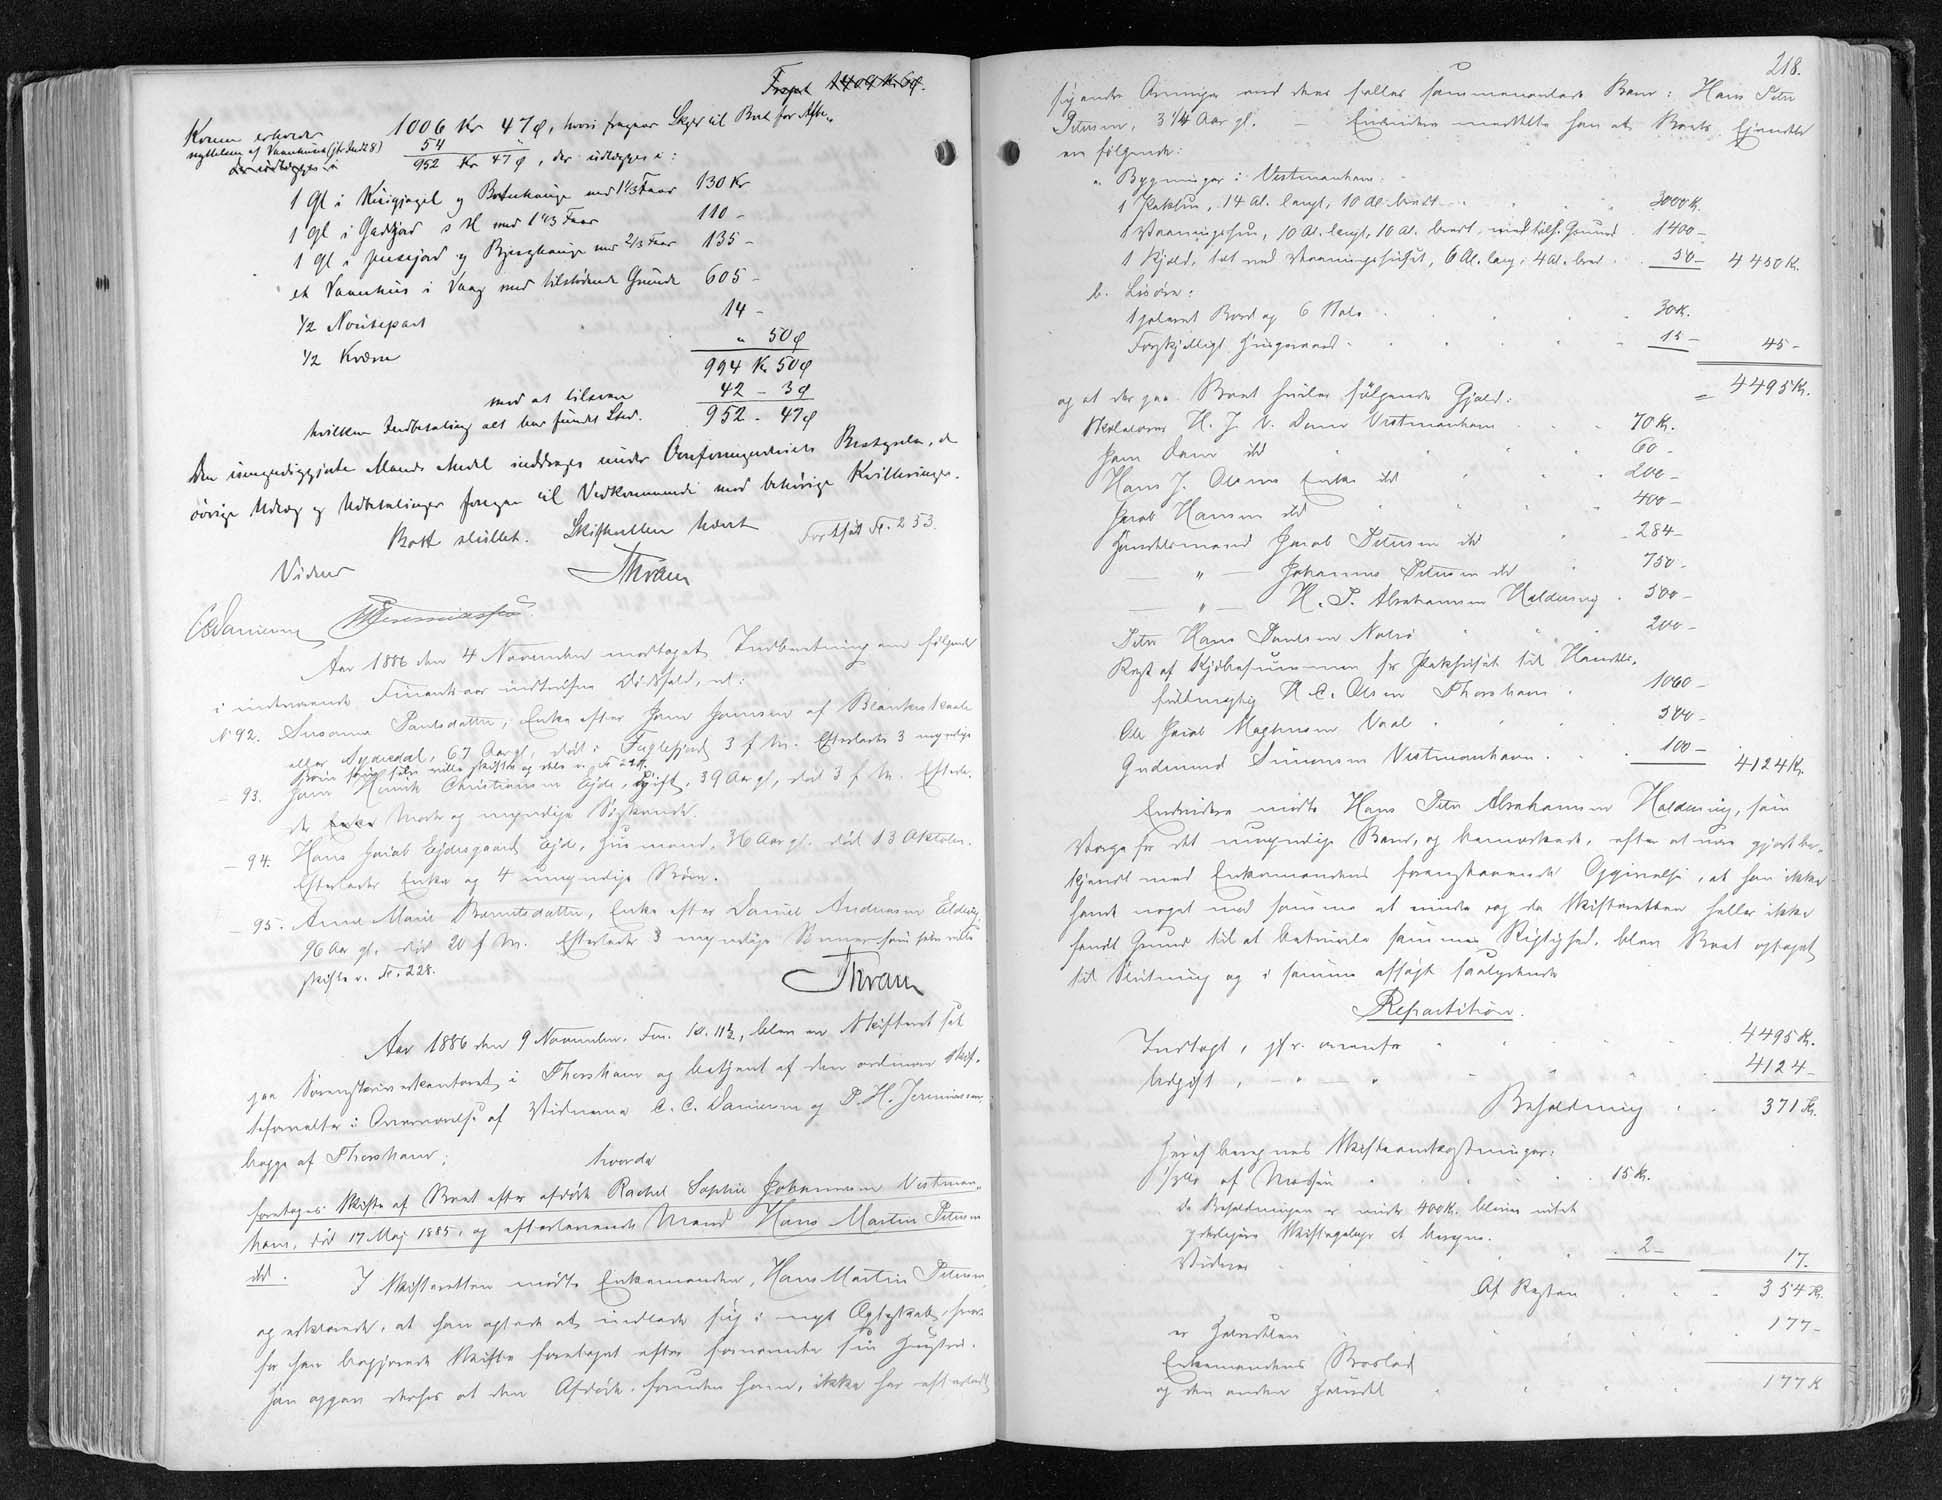 Transport 1404 Kr. 6 ø.
Konen erholder 1006 Kr 47 ø, hvori fragaar Skyer til Boet for Afbe-
nyttelsen af Vaanhuus (jfr. Indt 8) 54 "
der udlægges i 952 Kr 47 ø, der udlægges i:
1 Gl i Kirigjogel og Botnehauge med 1 1/3 Faar 130 Kr
1 gl i Gadkjød s H med 1 1/3 Faar 110 -
1 gl i og Bjerghauge med 2/3 Faar 135 -
et Vaanhuus i Vaag med tilstødende Grunde 605 -
1/2 Noutepart 14 -
1/2 Kværn " 50 ø
994 Kr 50 ø
med at tilsvare 42 - 3 ø
hvilken Indbetaling alt har fundet Sted. 952 - 47 ø
Den umyndiggjorte Mands Andel inddrages under Overformynderiets Bestyrelse, de
øvrige Udlæg og Udbetalinger foregaar til Vedkommende mod behørige Kvitteringer.
Boet sluttet. Skifteretten hævet Fortsat Fo. 253.
Vidner Thram
C. Danielsen Jeremiassen
Aar 1886 den 4 November modtaget Indberetning om følgende
i indeværende Finantsaar indtrufne Dødsfald, nl:
№ 92. Susanna Poulsdatter, Enke efter Joen Joensen af Blankeskaale
eller Sydredal, 67 Aar gl, død i Fuglefjord 3 f. M. Efterlader 3 myndige
Børn som selv ville skifte og dele v. Fo 228.
- 93. Joen Henrik Christiansen Ejde, ugift, 39 Aar gl, død 3 f. M. Efterla-
der Enke Moder og myndige Søskende.
- 94. Hans Jacob Ejdesgaard Ejde, Huusmand, 36 Aar gl. død 13 Oktober.
Efterlader Enke og 4 umyndige Børn.
- 95. Anne Marie Berentsdatter, Enke efter Daniel Andreasen Eldevig,
96 Aar gl. død 20 f. M. Efterlader 3 myndige Sønner som selv ville
skifte v. Fo. 228.
Thram
Aar 1886 den 9 November. Fm. Kl. 11 1/2, blev en Skifteret sat
paa Sorenskriverkontoret i Thorshavn og betjent af den ordinære Skif-
teforvalter i Overværelse af Vidnerne C. C. Danielsen og D. H. Jeremiassen,
begge af Thorshavn;
hvorda
foretoges Skifte af Boet efter afdøde Rachel Sophie Johannesen Vestman-
havn, død 17 Maj 1885, og efterlevende Mand Hans Martin Petersen
ibd.
I Skifteretten mødte Enkemanden, Hans Martin Petersen,
og erklærede, at han agtede at indlade sig i nyt Ægteskab, hvor-
for han begjærede Skifte foretaget efter fornævnte sin Hustru.
Han opgav derhos at den Afdøde, foruden ham, ikke har efterladt
218.
sig andre Arvinger end deres fælles sammenavlede Barn: Hans Peter
Petersen, 3 1/4 Aar gl. - Endvidere meddelte han at Boets Ejendele
ere følgende:
a. Bygninger i Vestmanhavn.
1 Pakhuus, 14 Al. langt, 10 Al. bredt 3000 K.
1 Vaaningshuus, 10 Al. langt, 10 Al. bredt, med tilh. Grund 1400 -
1 Hjald, tæt ved Vaaningshuset, 6 Al. lang, 4 Al. bred 50 - 4450 K.
b. Løsøre:
1 poleret Bord og 6 Stole 30 K.
Forskjelligt Huusgeraad 15 - 45 -
= 4495 Kr.
og at der paa Boet hviler følgende Gjæld:
Skolelærer H. J. V. Dam Vestmanhavn 70 K.
Joen Dam ibd 60 -
Hans J. Olsens Enke ibd 200 -
Jacob Hansen ibd 400 -
Handelsmand Jacob Petersen ibd 284 -
— " — Johannes Petersen ibd 750 -
— " — H. P. Abrahamsen Haldervig 500 -
Peter Hans Poulsen Nolsø 200 -
Rest af Kjøbesummen for Pakhuset til Handels-
fuldmægtig H. C. Olsen Thorshavn 1060 -
Ole Jacob Magnusen Vaal 500 -
Gudmund Simonsen Vestmanhavn 100 - 4124 K.
Endvidere mødte Hans Peter Abrahamsen Haldervig, som
Værge for det umyndige Barn, og bemærkede, efter at være gjort be-
kjendt med Enkemandens foranstaaende Opgivelse, at han ikke
havde noget mod samme at erindre og da Skifteretten heller ikke
fandt Grund til at betvivle sammes Rigtighed, blev Boet optaget
til Slutning og i samme afsagt saalydende
Repartition.
Indtægt, jfr. ovenfor 4495 K.
Udgift, - " - " 4124 -
Beholdning 371 K.
Heraf beregnes Skifteomkostninger:
af Massen 15 K.
da Beholdningen er under 400 K. bliver intet
yderligere Skiftegebyr at beregne.
Vidner 2 - 17.
Af Resten 354 K.
er Halvdelen 177 -
Enkemandens Boslod
og den anden Halvdel 177 K